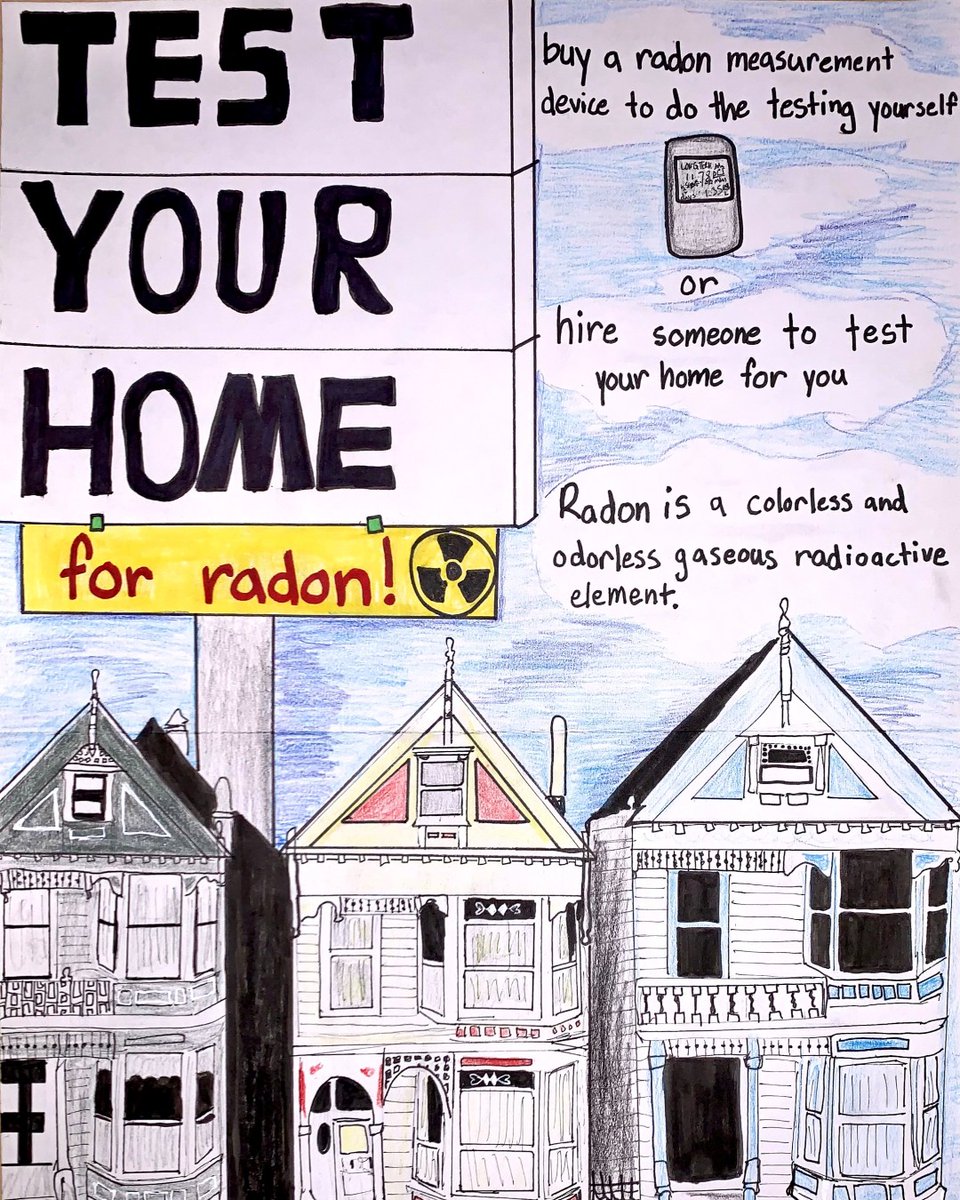 TEST
YOUR
HOME
for radon!
buy a radon measurement
device to do the testing yourself
LONG TERM
or
hire someone to test
your home for you
Radon is a colorless and
odorless gaseous radioactive
element.